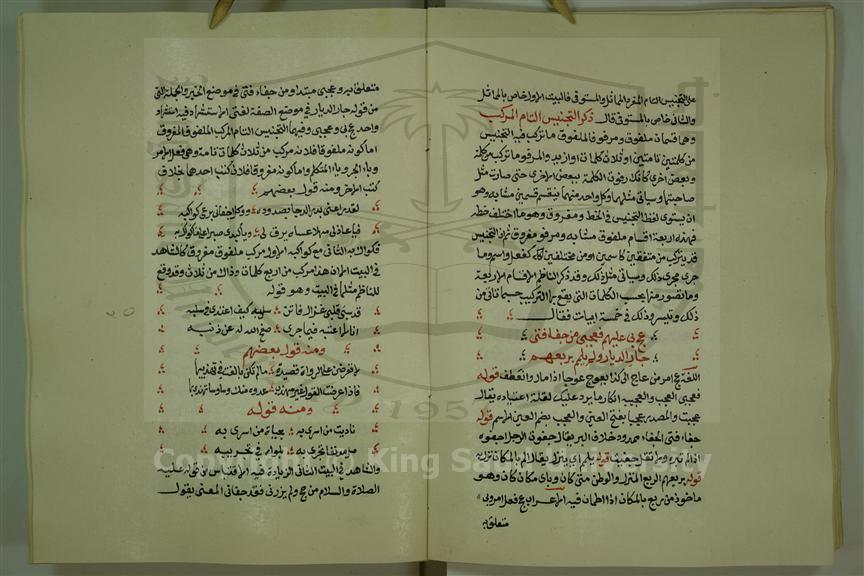 على التجنيس التام المفرد المماثل والمستوفى فالبيت الاول خاص بالمماثل
والثانى خاص بالمستوفى قال ذكر التجنيس التام المركب
وهما قسمان ملفوق ومرفو فالملفوق ما تركب فيه التجنيس
من كلمتين تامتين او ثلاث كلمات او ازيد والمرفو ما تركب من كلمة
وبعض اخرى كانك رفوت الكلمة ببعض الاخرى حتى صارت مثل
صاحبتها وسياتى مثلهما وكل واحد منهما ينقسم قسمين متشابه وهو
ان يستوى لفظا التجنيس فى الخط ومفروق وهو ما اختلف خطه
فهذه اربعة اقسام ملفوق متشابه ومرفو مفروق ثم ان التجنيس
قد يتركب من متفقين كاسمين او من مختلفين كفعل واسم وما
جرى مجرى ذلك وسياتى مثل ذلك وقد ذكر الناظم الاقسام الاربعة
بحسب الكلمات التى يقع بها التركيب حسبما تاتى من
ذلك وتيسر وذلك فى خمسة ابيات فقال
عج بى عليهم فعجبى من جفاء فتى
جاز الديار ولم يلم بربعهم
اللغة عج امر من عاج الى كذا يعوج عوجا اذا مال وانعطف قوله
فعجبى العجب والعجيبة انكار ما يرد عليك لقلة اعتياده يقال
عجبت والمصدر عجبا بفتح العين والعجب بضم العين الاسم قوله
جفاء فتى الجفاء ممدود خلاف البر يقال جفوت الرجل اجفوه
ولا تقل جفيته قوله يلم به ينزل يقال الم بالمكان نزل به
قوله بربعهم الربع المنزل والوطن متى كان وباى مكان كان وهو
ماخوذ من ربع بالمكان اذا اطمان فيه الاعراب عج فعل امر وبى
متعلق به
متعلق به وعجبى مبتدا ومن جفاء فتى فى موضع الخبر والجملة التى
من قوله جاز الديار فى موضع الصفة لفتى الاستشهاد فيه استشهاد
واحد عج بى وعجبى وفيهما التجنيس التام المركب الملفوق المفروق
اما كونه ملفوقا فلانه مركب من ثلاث كلمات تامة وهى فعل الامر
وباء الجر وياء المتكلم واما كونه مفروقا فلان كتب احدهما خلاف
كتب الاخر ومنه قول بعضهم
لقد راعنى بدر الدجا بصدوده ووكل اجفانى برعى كواكبه
فيا عاذلى مهلا عساه يرق لى ويا كبدى صبرا على ما كواك به
فكواك به الثانى مع كواكبه الاول مركب ملفوق مفروق كالشاهد
فى البيت الا ان هذا مركب من اربع كلمات وذاك من ثلاث وقد وقع
للناظم مثلها فى البيت وهو قوله
قد سبى قلبى غزال فاتن سل به كيف اعتدى فى سلبه
انا لم اعتبه فيما جرى صفح الله له عن ذنبه
ومنه قول بعضهم
لا تعرضن على الرواة قصيدة ما لم تكن بالغت فى تهذيبها
فاذا عرضت القول غير مهذب عدوه منك وساوسا تهذى بها
ومنه قوله
ناديت من اسرى به بحياة من اسرى به
تجرى به
والشاهد فى البيت الثانى الزيادة فيه الاقتباس من قوله عليه
الصلاة والسلام من حج ولم يزرنى فقد جفانى المعنى يقول